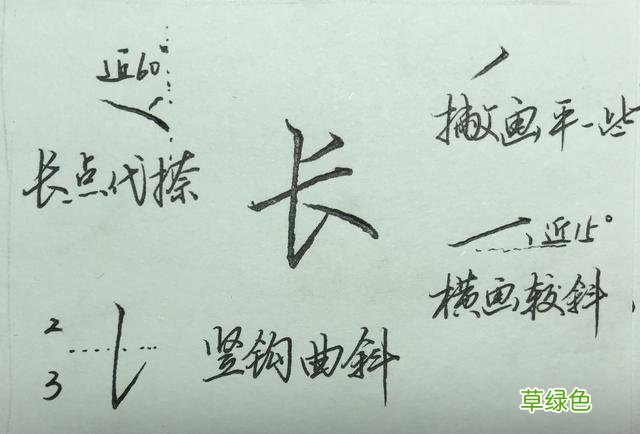 近60°
长点代捺
长
撇画平一些
近15°
横画较斜
2
3
竖钩曲斜
草绿色